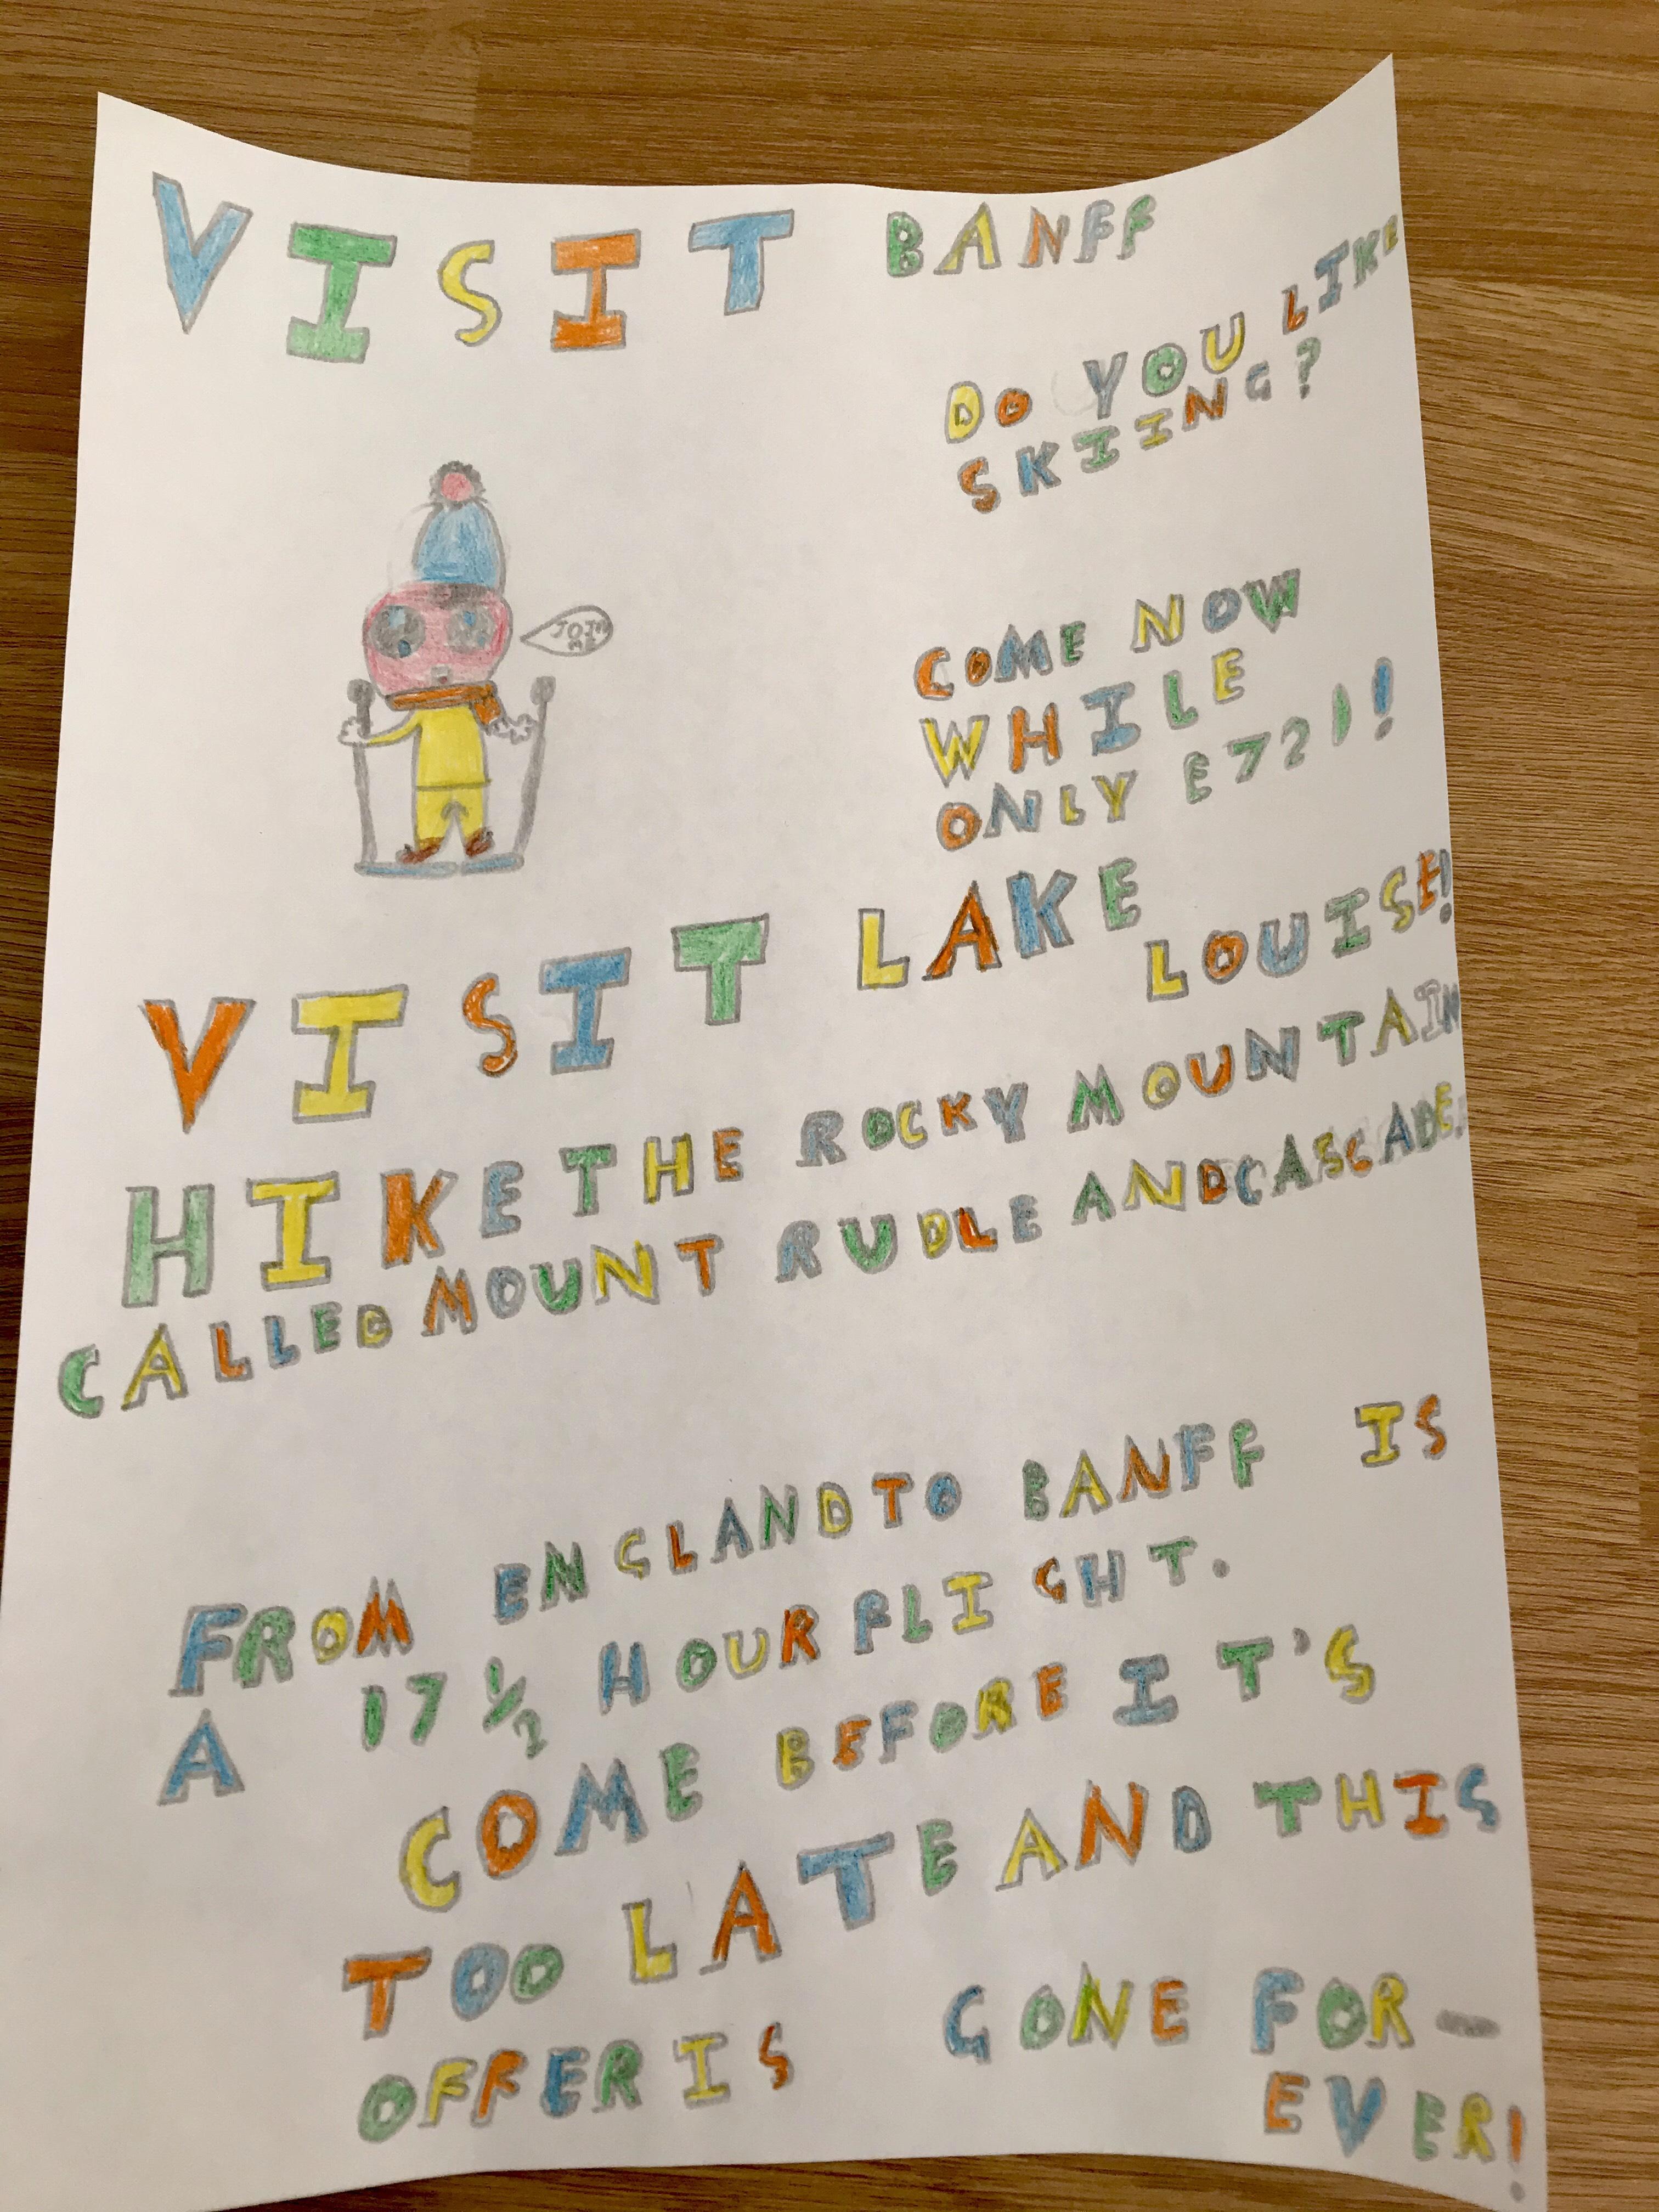 VISIT BANFF
DO YOU LIKE
SKIING?
JOIN
ME
COME NOW
WHILE
ONLY £721!
VISIT LAKE
LOUISE!
HIKE THE ROCKY MOUNTAIN
CALLED MOUNT RUDLE AND CASCADE.
FROM ENGLAND TO BANFF IS
A 17 1/2 HOUR FLIGHT.
COME BEFORE IT'S
TOO LATE AND THIS
OFFER IS GONE FOR-
EVER!